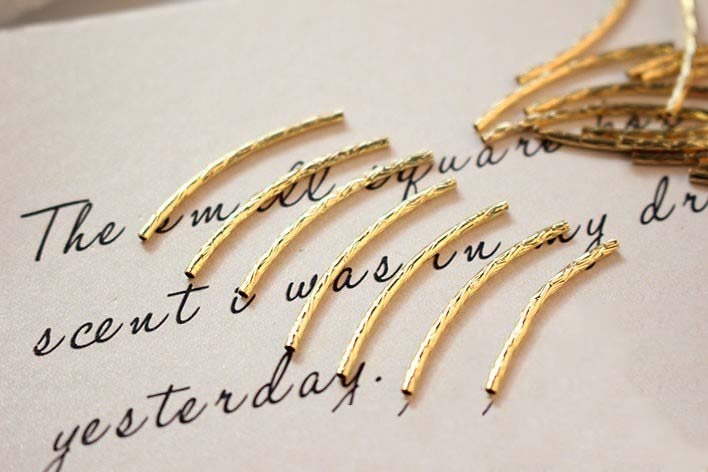 The small square
scent i was in my dr
yesterday.